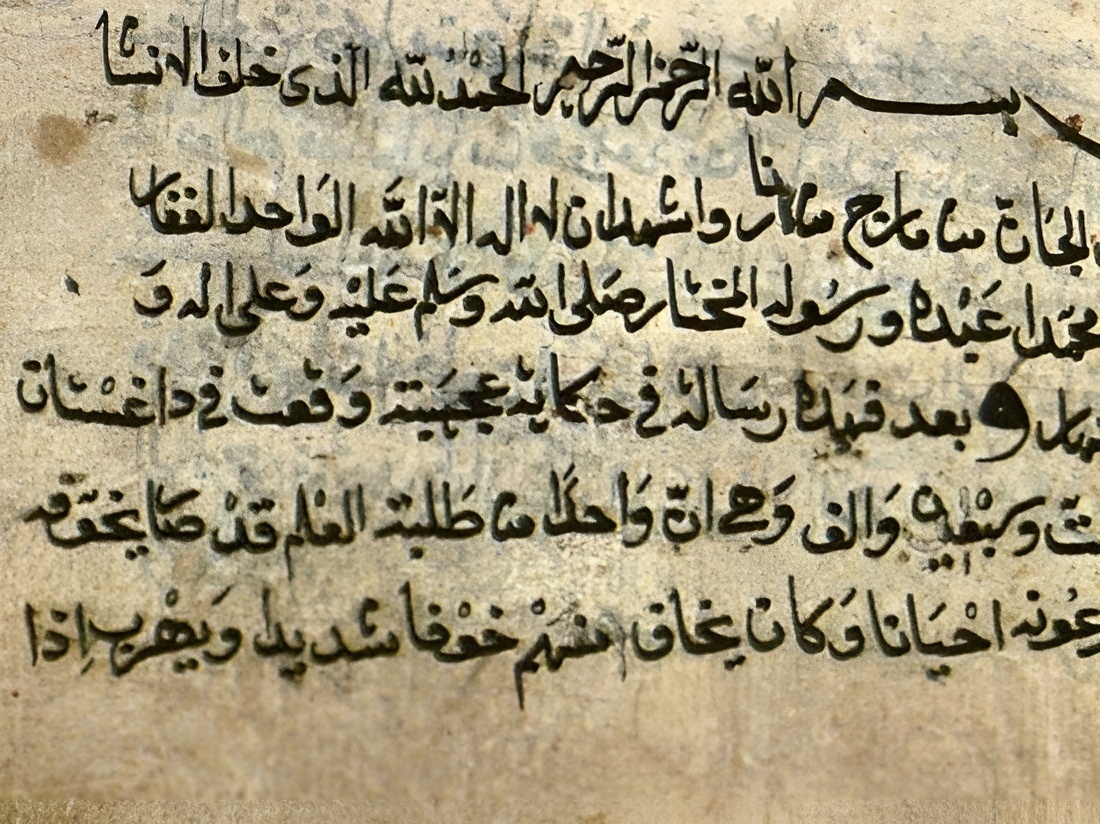 بسم الله الرّحمن الرّحيم الحمد لله الذى خلق الانسا
الجَانّ من مارج من نار واشهد ان لا اله الا الله الوَاحد الغفار
محمّدا عَبْده ورسُوله المختار صَلى الله وسَلم عَليْه وَعلى اله وَ
وبعد فهَذه رسَالة فى حكاية عجيبَة وَقعت في داغسْتان
ستّ وسبْعين وَالف وَهى انّ وَاحدًا من طَلبة العْلم قدْ
احْيَانا وَكان يخاف منهمْ خوْفا شديدا وَيهْرب اِذا